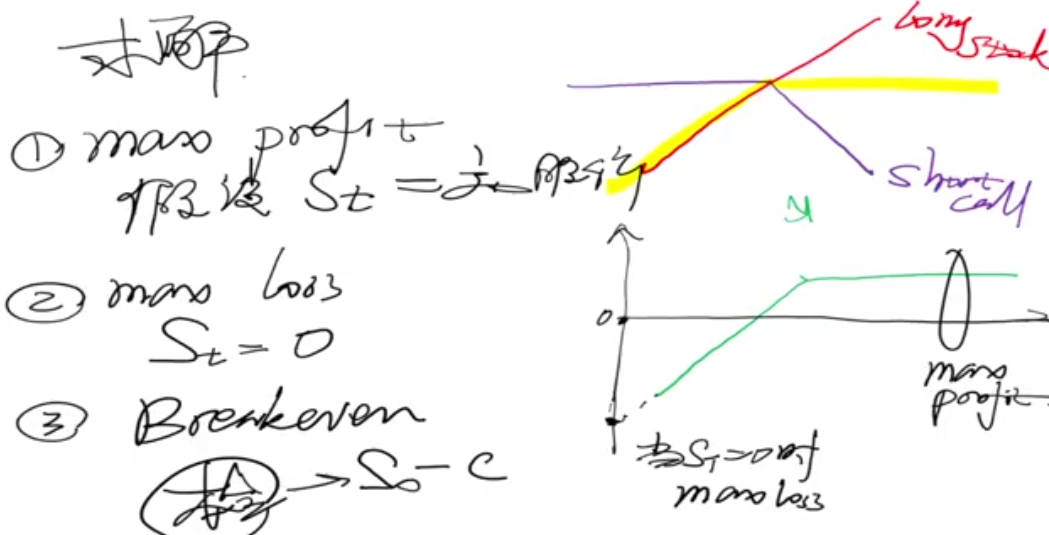 ① max profit
假设 St = 正无穷
② max loss
St = 0
③ Breakeven
成本 → S0 - C
Long
stock
short
call
0
max
profit
当ST=0时
max loss